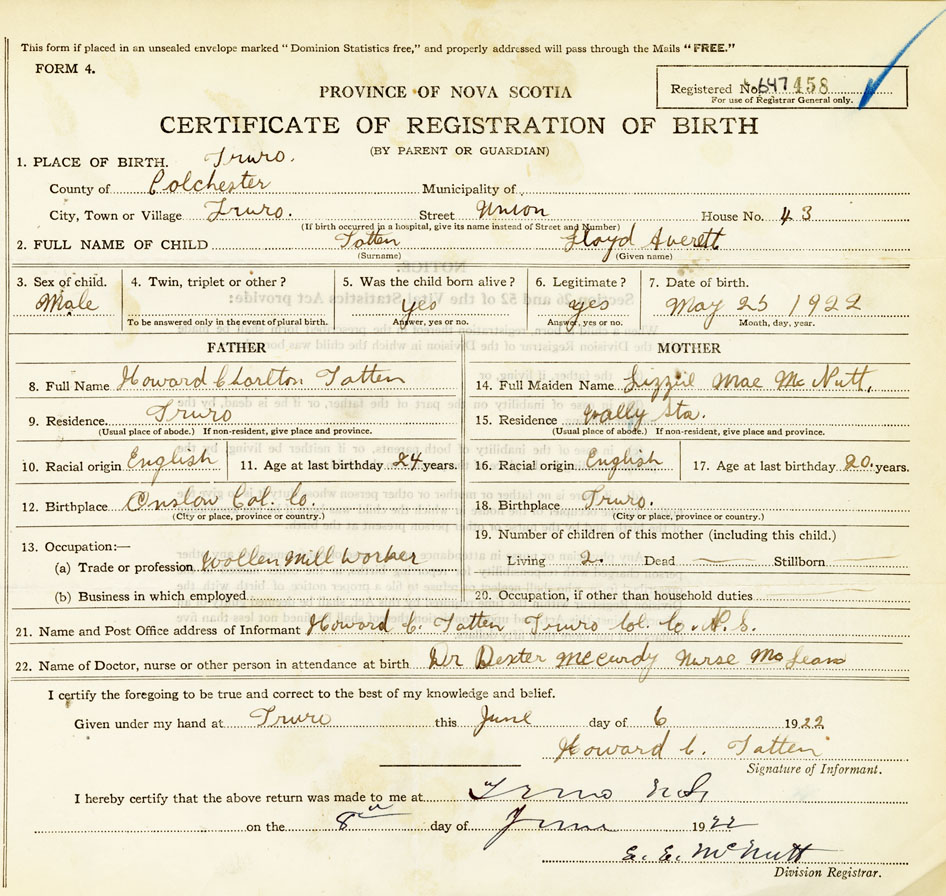 This form if placed in an unsealed envelope marked "Dominion Statistics free," and properly addressed will pass through the Mails "FREE."
FORM 4.
Registered No. 647458
For use of Registrar General only.
PROVINCE OF NOVA SCOTIA
CERTIFICATE OF REGISTRATION OF BIRTH
(BY PARENT OR GUARDIAN)
1. PLACE OF BIRTH. Truro.
County of Colchester Municipality of
City, Town or Village Truro. Street Union House No. 43
(If birth occurred in a hospital, give its name instead of Street and Number)
2. FULL NAME OF CHILD Tatten Lloyd Averett
(Surname) (Given name)
3. Sex of child. 4. Twin, triplet or other? 5. Was the child born alive? 6. Legitimate? 7. Date of birth.
Male yes yes May 25 1922
To be answered only in the event of plural birth. Answer, yes or no. Answer, yes or no. Month, day, year.
FATHER MOTHER
8. Full Name Howard Charlton Tatten 14. Full Maiden Name Lizzie Mae McNutt,
9. Residence. Truro 15. Residence Wally Sta.
(Usual place of abode.) If non-resident, give place and province. (Usual place of abode.) If non-resident, give place and province.
10. Racial origin English 11. Age at last birthday 24 years. 16. Racial origin English 17. Age at last birthday 20. years.
12. Birthplace Onslow Col. Co. 18. Birthplace Truro.
(City or place, province or country.) (City or place, province or country.)
13. Occupation:— 19. Number of children of this mother (including this child.)
(a) Trade or profession Wollen Mill Worker Living 2. Dead — Stillborn —
(b) Business in which employed 20. Occupation, if other than household duties
21. Name and Post Office address of Informant Howard C. Tatten Truro Col. Co. N.S.
22. Name of Doctor, nurse or other person in attendance at birth Dr Dexter McCurdy Nurse McLean
I certify the foregoing to be true and correct to the best of my knowledge and belief.
Given under my hand at Truro this June day of 6 1922
Howard C. Tatten
Signature of Informant.
I hereby certify that the above return was made to me at Truro N.S.
on the 8th day of June 1922
E. E. McNutt
Division Registrar.